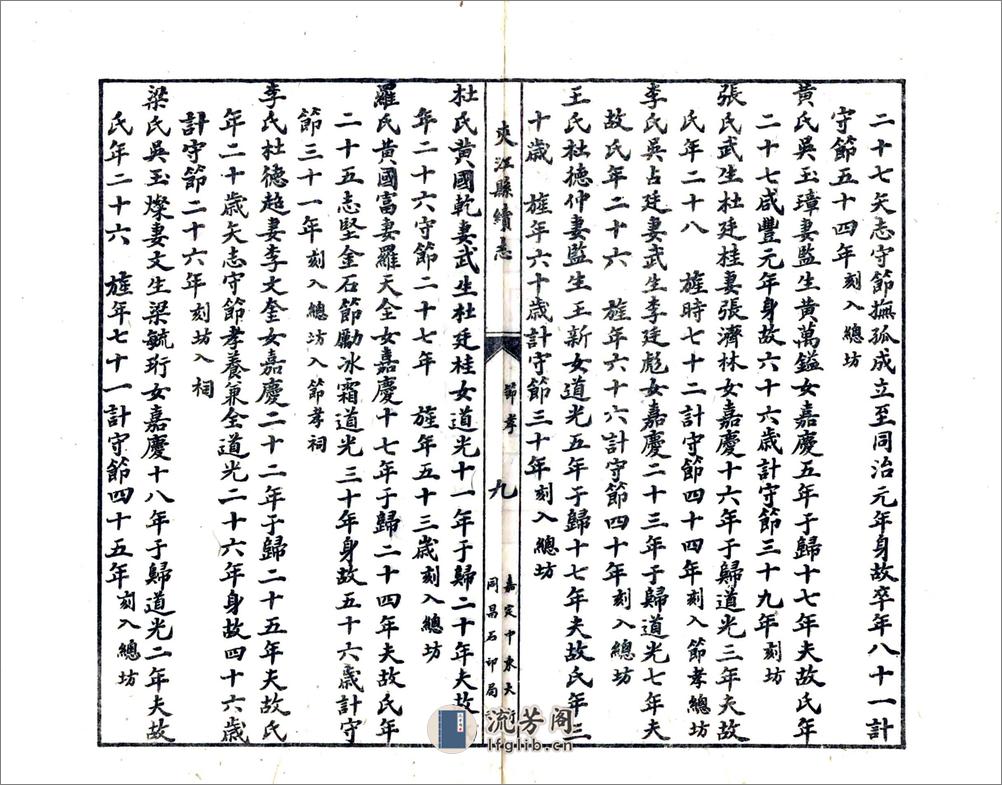 二十七矢志守節撫孤成立至同治元年身故卒年八十一計
守節五十四年刻入總坊
黃氏吳玉璋妻監生黃萬鎰女嘉慶五年于歸十七年夫故氏年
二十七咸豐元年身故六十六歲計守節三十九年刻坊
張氏武生杜廷桂妻張濟林女嘉慶十六年于歸道光三年夫故
氏年二十八 旌時七十二計守節四十四年刻入節孝總坊
李氏吳占廷妻武生李廷彪女嘉慶二十三年于歸道光七年夫
故氏年二十六 旌年六十六計守節四十年刻入總坊
王氏杜德仲妻監生王新女道光五年于歸十七年夫故氏年三
十歲 旌年六十歲計守節三十年刻入總坊
夾江縣續志
節孝
九
嘉定中東大街
同昌石印局
杜氏黃國乾妻武生杜廷桂女道光十一年于歸二十年夫故
年二十六守節二十七年 旌年五十三歲刻入總坊
羅氏黃國富妻羅天全女嘉慶十七年于歸二十四年夫故氏年
二十五志堅金石節勵冰霜道光三十年身故五十六歲計守
節三十一年刻入總坊入節孝祠
李氏杜德超妻李文金女嘉慶二十二年于歸二十五年夫故氏
年二十歲矢志守節孝養兼全道光二十六年身故四十六歲
計守節二十六年刻坊入祠
梁氏吳玉燦妻文生梁毓珩女嘉慶十八年于歸道光二年夫故
氏年二十六 旌年七十一計守節四十五年刻入總坊
流芳阁
lfglib.cn